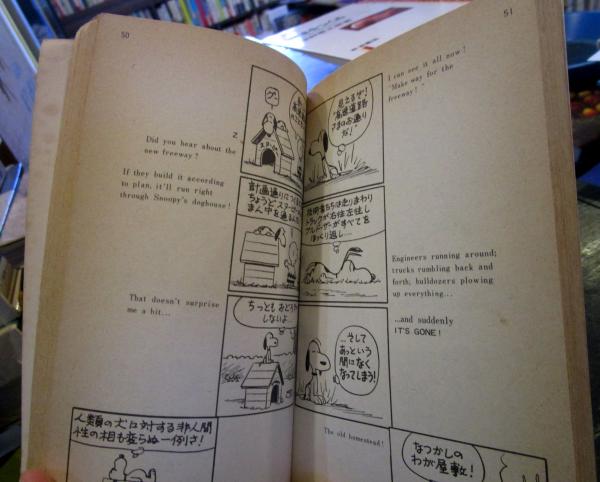 50
Did you hear about the
new freeway?
If they build it according
to plan, it'll run right
through Snoopy's doghouse!
Z
グ
計画通りに
ちょうどスヌーピー
まん中を通るんだ
That doesn't surprise
me a bit...
ちっともおどろ
しないよ…
人類の犬に対する非人間
性の相も変らぬ一例さ!
51
I can see it all now!
"Make way for the
freeway!"
見えるぜ!
"高速道路
さまのお通り
だ!"
技術者たちは走りまわり
トラックが右往左往し
ブルドーザーがすべてを
ほっくり返し…
Engineers running around;
trucks rumbling back and
forth, bulldozers plowing
up everything...
...and suddenly
IT'S GONE!
…そして
あっという
間になく
なってしまう!
The old homestead!
なつかしの
わが屋敷!